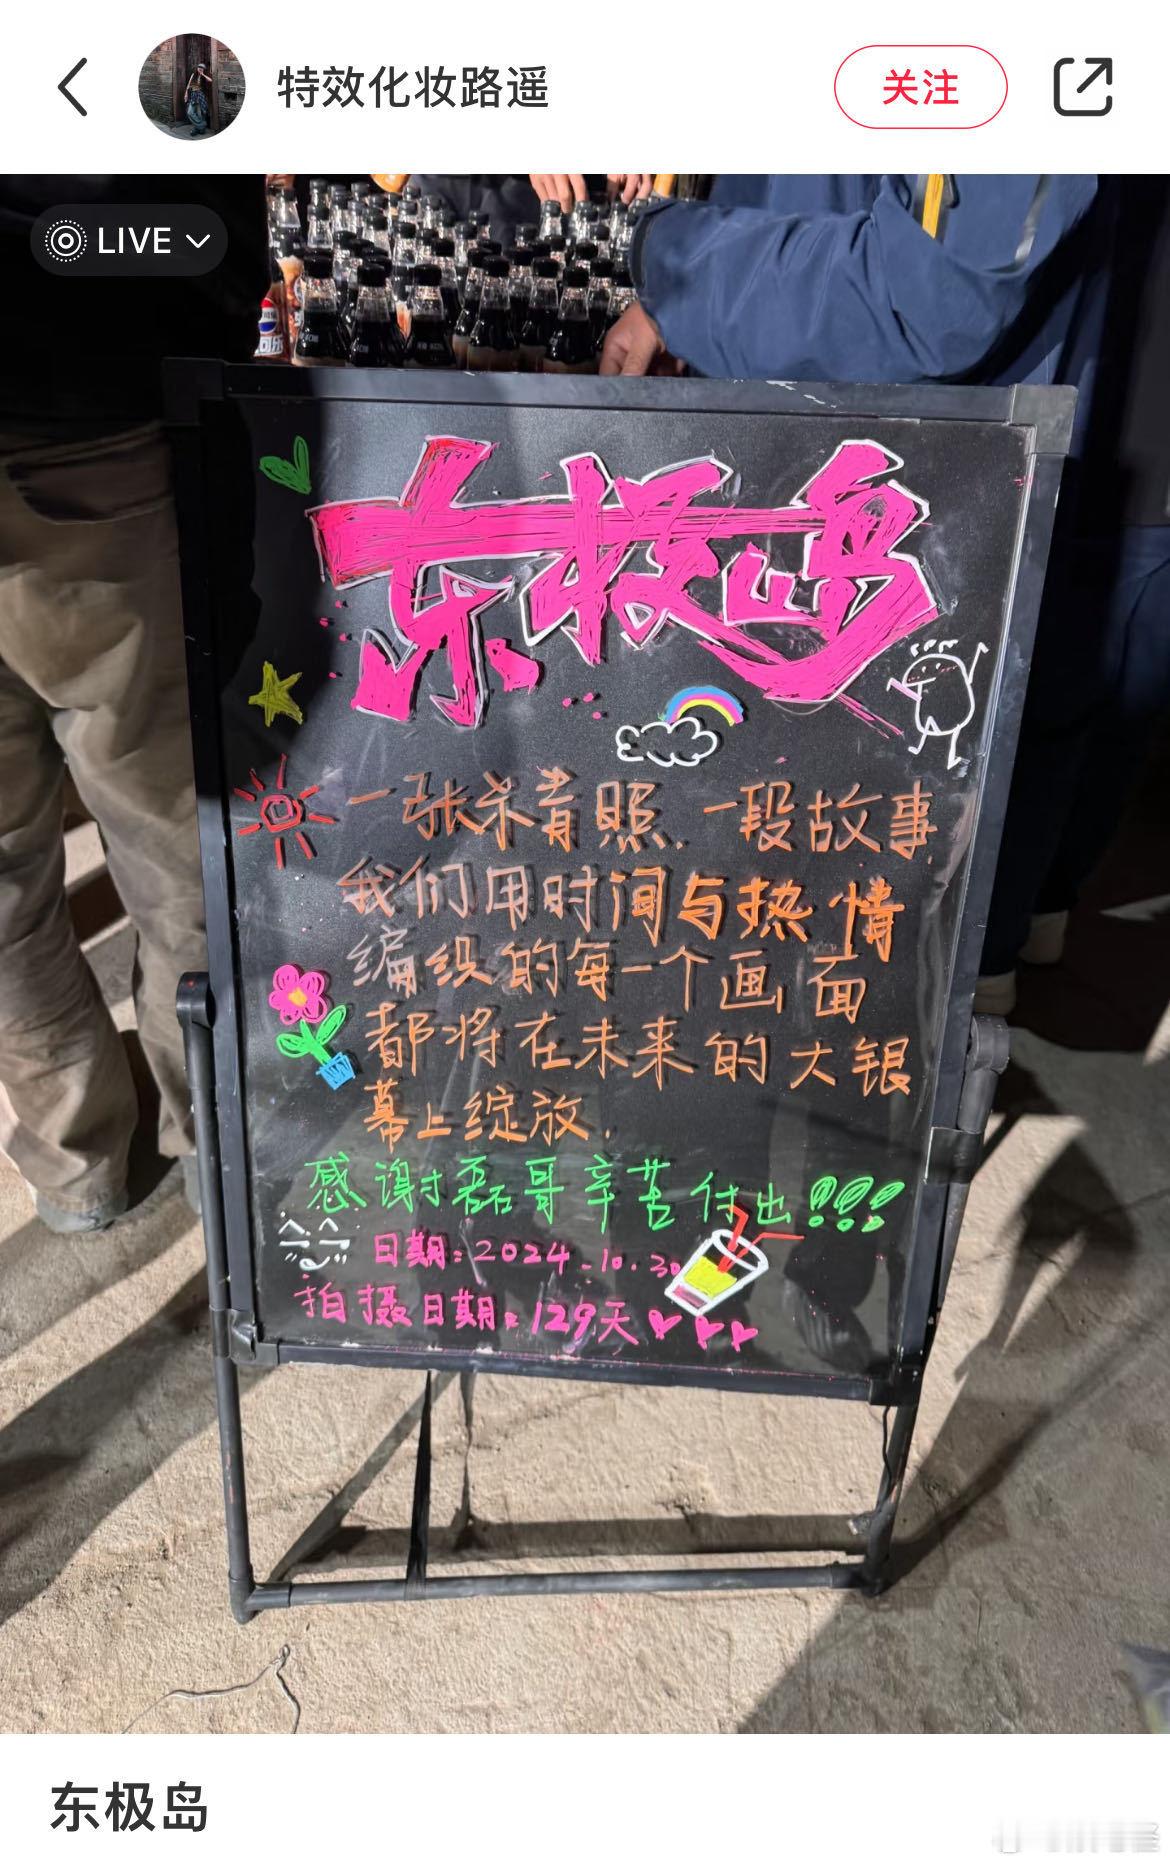 特效化妆路遥
关注
LIVE
东极岛
一张杀青照.一段故事.
我们用时间与热情
编织的每一个画面
都将在未来的大银
幕上绽放.
感谢磊哥辛苦付出!!!
日期:2024.10.30
拍摄日期:129天
东极岛